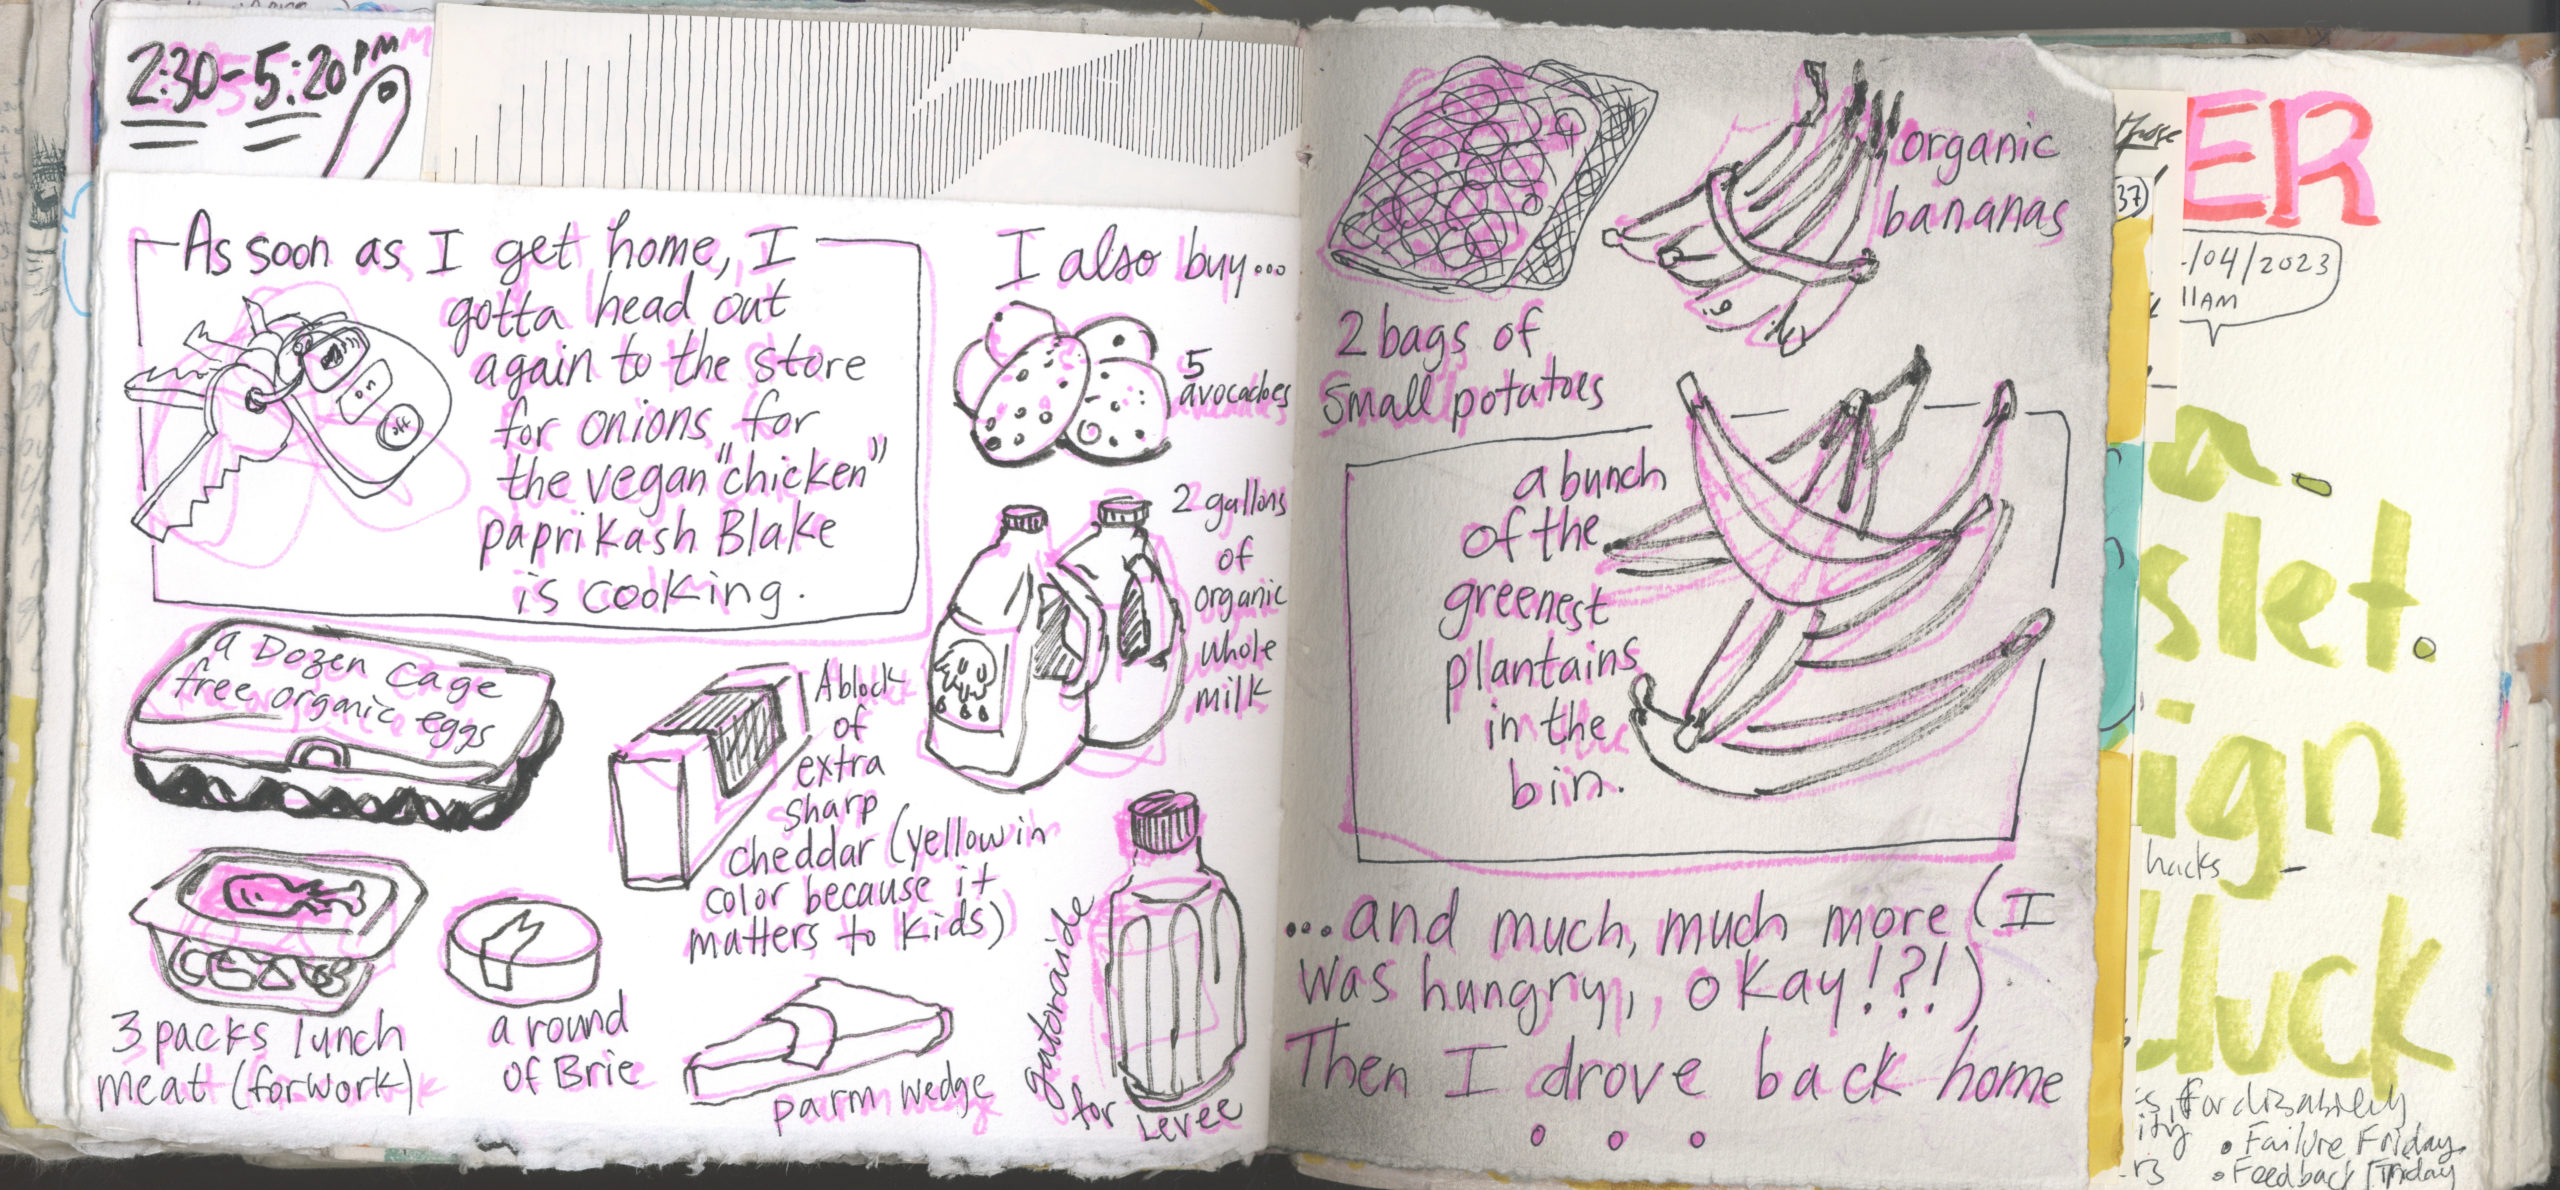 2:30-5:20PM
As soon as I get home, I
gotta head out
again to the store
for onions for
the vegan "chicken"
paprikash Blake
is cooking.
on
off
I also buy...
5
avocadoes
2 gallons
of
organic
whole
milk
a Dozen Cage
free organic eggs
A block
of
extra
sharp
cheddar (yellow in
color because it
matters to kids)
3 packs lunch
meat (for work)
a round
of Brie
parm wedge
gatoraide
for Levee
2 bags of
small potatoes
organic
bananas
a bunch
of the
greenest
plantains
in the
bin.
...and much, much more (I
was hungry, okay!?!)
Then I drove back home
...
those
37)
ER
/04/2023
11AM
a.
slet.
ign
hacks
luck
for disability
• Failure Friday
• Feedback Friday